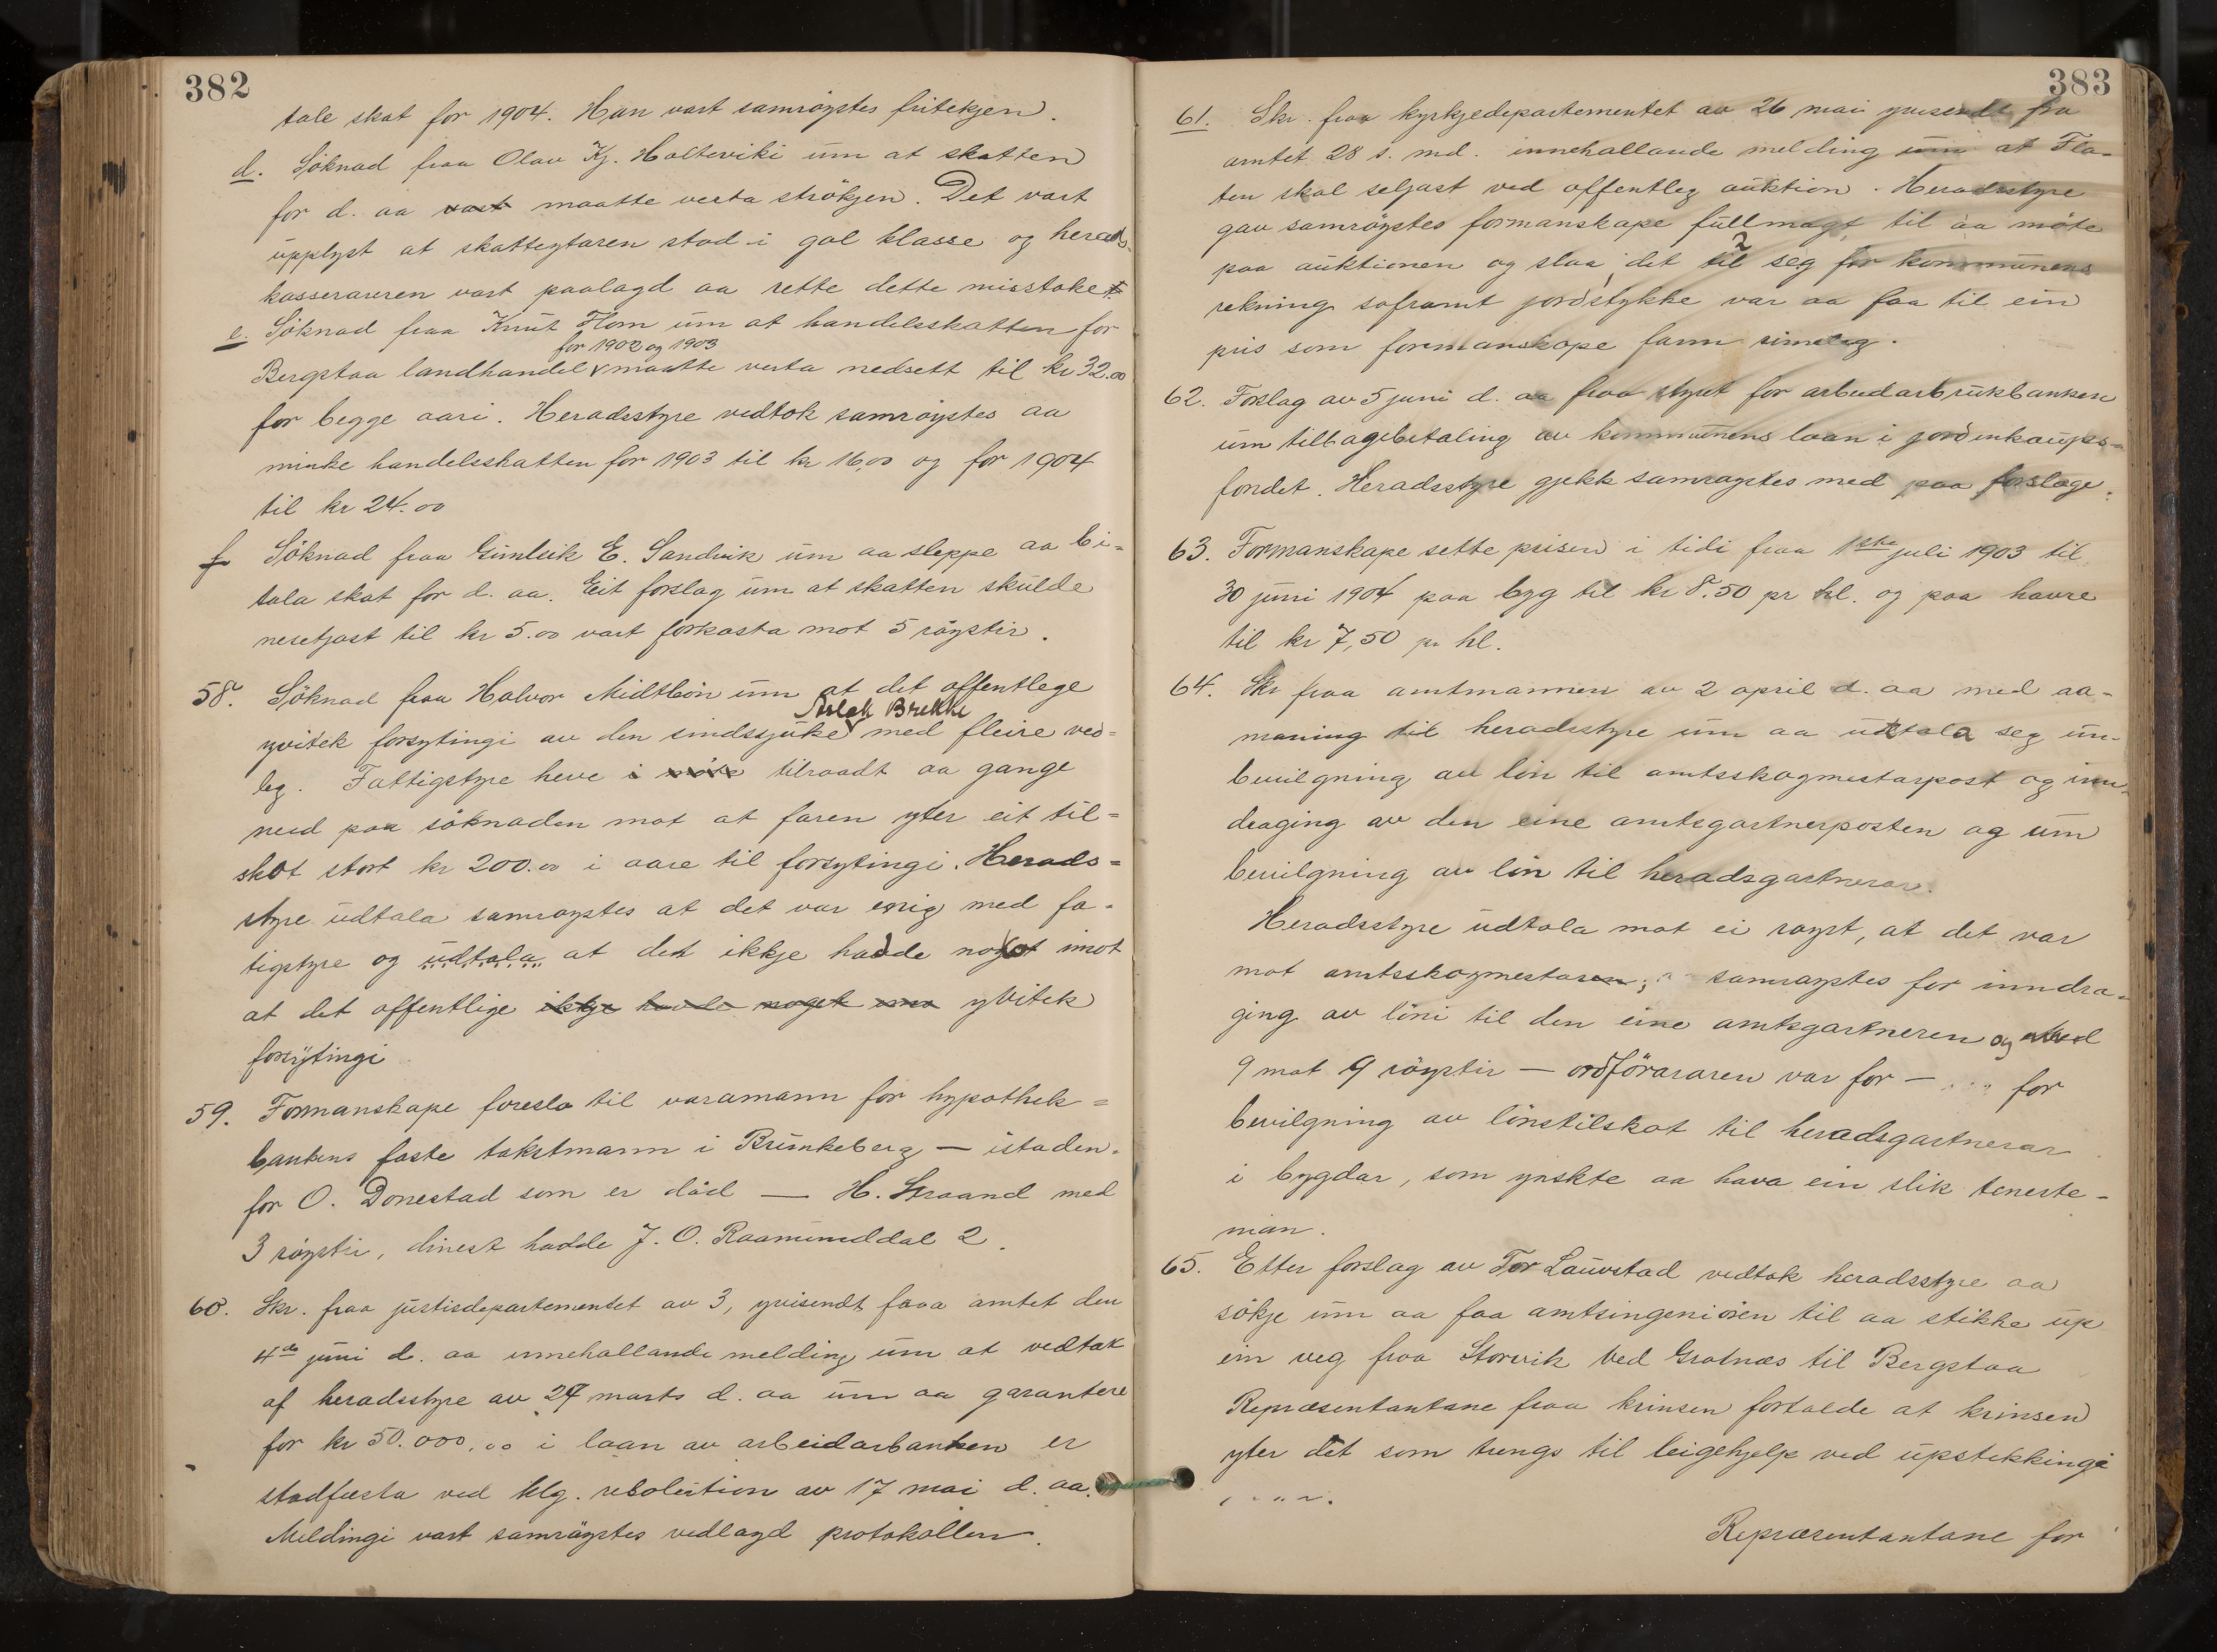 382
tale skat for 1904. Han vart samröystes fritekjen.
d. Söknad fraa Olav Kj. Holteviki um at skatten
for d. aa vart maatte verta strökjen. Det vart
upplyst at skatteytaren stod i gal klasse og herads
kasseraren vart paalagd aa rette dette misstaket
e. Söknad fraa Knut Hom um at handelsskatten for
for 1902 og 1903
Bergstaa landhandel maatte verta nedsett til kr 32.00
for begge aari. Heradsstyre vedtok samröystes aa
minke handelsskatten for 1903 til kr 16,00 og for 1904
til kr 24.00
f Söknad fraa Gunleik E. Sandvik um aa sleppe aa bi=
tala skat for d. aa. Eit forslag um at skatten skulde
nesetjast til kr 5.00 vart forkasta mot 5 röystir.
58. Söknad fraa Halvor Midtbön um at det offentlege
Aslak Brekke
yvitek forsytingi av den sindssjuke med fleire ved=
leg. Fattigstyre heve i möte tilraadt aa gange
med paa söknaden mot at faren yter eit til=
skot stort kr 200.00 i aare til forsytingi. Herads=
styre udtala samroystes at det var enig med fa-
tigstyre og udtala at det ikkje hadde noget imot
at det offentlige ikkje havde noget imo yvitek
forsytingi
59. Formanskape foreslo til varamann for hypothek=
bankens faste takstmann i Brunkeberg — istaden-
for O. Donestad som er död — H. Straand med
3 röystir, dinest hadde J. O. Raamunddal 2.
60. Skr. fraa justisdepartementet av 3, yvisendt fraa amtet den
4de juni d. aa innehallande melding um at vedtak
af heradsstyre av 27 marts d. aa um aa garantere
for kr 50.000,00 i laan av arbeidarbanken er
stadfæsta ved klg. resolution av 17 mai d. aa.
Meldingi vart samröystes vedlagd protokollen.
383
61. Skr. fraa kyrkjedepartementet av 26 mai yvisendt fra
amtet 28 s. md. innehallande melding um at Fla-
ten skal seljast ved offentleg auktion. Heradsstyre
gav samröystes formanskape fullmagt til aa möte
paa auktionen og slaa det til seg for kommunens
rekning soframt jordstykke var aa faa til ein
pris som formanskape fann rimeleg.
62. Forslag av 5 juni d. aa fraa styret for arbeidarbrukbanken
um tilbagebetaling av kommunens laan i jordinkaups-
fondet. Heradsstyre gjekk samroystes med paa forslage.
63. Formanskape sette prisen i tidi fraa 1ste juli 1903 til
30 juni 1904 paa byg til kr 8.50 pr hl. og paa havre
til kr 7,50 pr hl.
64. Skr fraa amtmannen av 2 april d. aa med aa-
maning til heradsstyre um aa udtala seg um
beviilgning av lön til amtsskogmestarpost og inn-
draging av den eine amtsgartnerposten og um
bevilgning av lön til heradsgartnerar.
Heradsstyre udtala mot ei royst, at det var
mot amtsskogmestaren; samroystes for inndra-
ging av löni til den eine amtsgartneren og med
9 mot 9 röystir — ordföraren var for — for
bevilgning av lönstilskot til heradsgartnerar
i bygdar, som ynskte aa hava ein slik teneste-
man.
65. Etter forslag av Tor Lauvstad vedtok heradsstyre aa
sökje um aa faa amtsingeniören til aa stikke up
ein veg fraa Storvik ved Grotnæs til Bergstaa
Repræsentantane fraa krinsen fortalde at krinsen
yter det som trengs til leigehjelp ved upstikkingi
Repræsentantane for